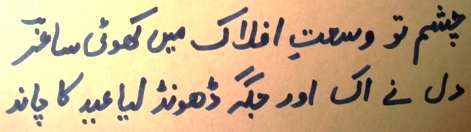 چشم تو وسعتِ افلاک میں کھوئی ساغرؔ
دل نے اک اور جگہ ڈھونڈ لیا عید کا چاند